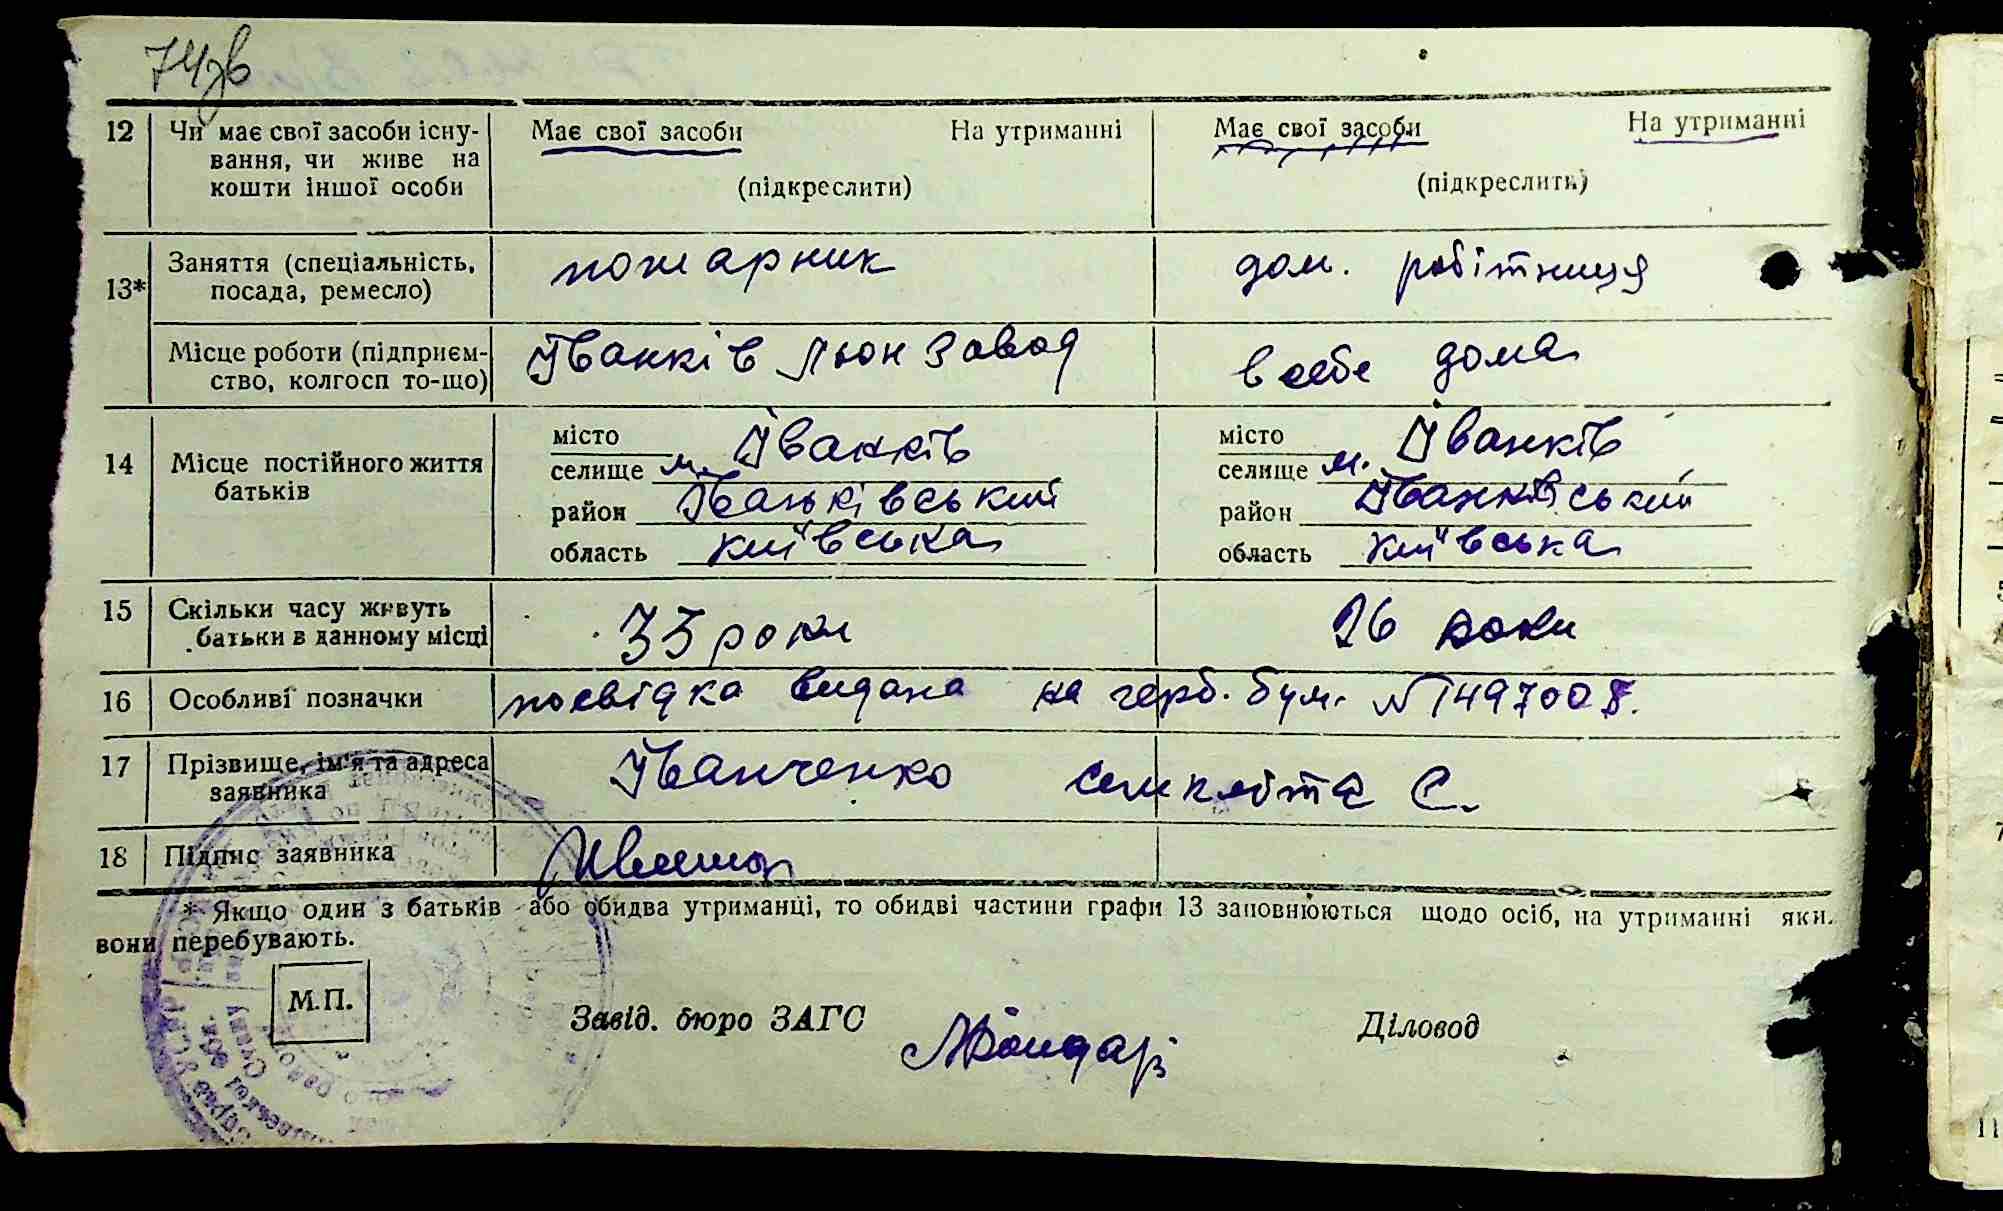 74зв
12 Чи має свої засоби існу- Має свої засоби На утриманні Має свої засоби На утриманні
вання, чи живе на
кошти іншої особи (підкреслити) (підкреслити)
13* Заняття (спеціальність, пожарник дом. робітниця
посада, ремесло)
Місце роботи (підприєм- Іванків Льон Завод в себе дома
ство, колгосп то-що)
14 Місце постійного життя батьків
місто Іванків місто Іванків
селище м. селище м.
район Іваньківський район Іванківський
область київська область київська
15 Скільки часу живуть 33 роки 26 роки
батьки в данному місці
16 Особливі позначки посвідка видана на герб. бум. №1497008.
17 Прізвище, ім'я та адреса Іванченко С.
заявника
18 Підпис заявника
* Якщо один з батьків або обидва утриманці, то обидві частини графи 13 заповнюються щодо осіб, на утриманні яки.
вони перебувають.
М.П.
Завід. бюро ЗАГС Діловод